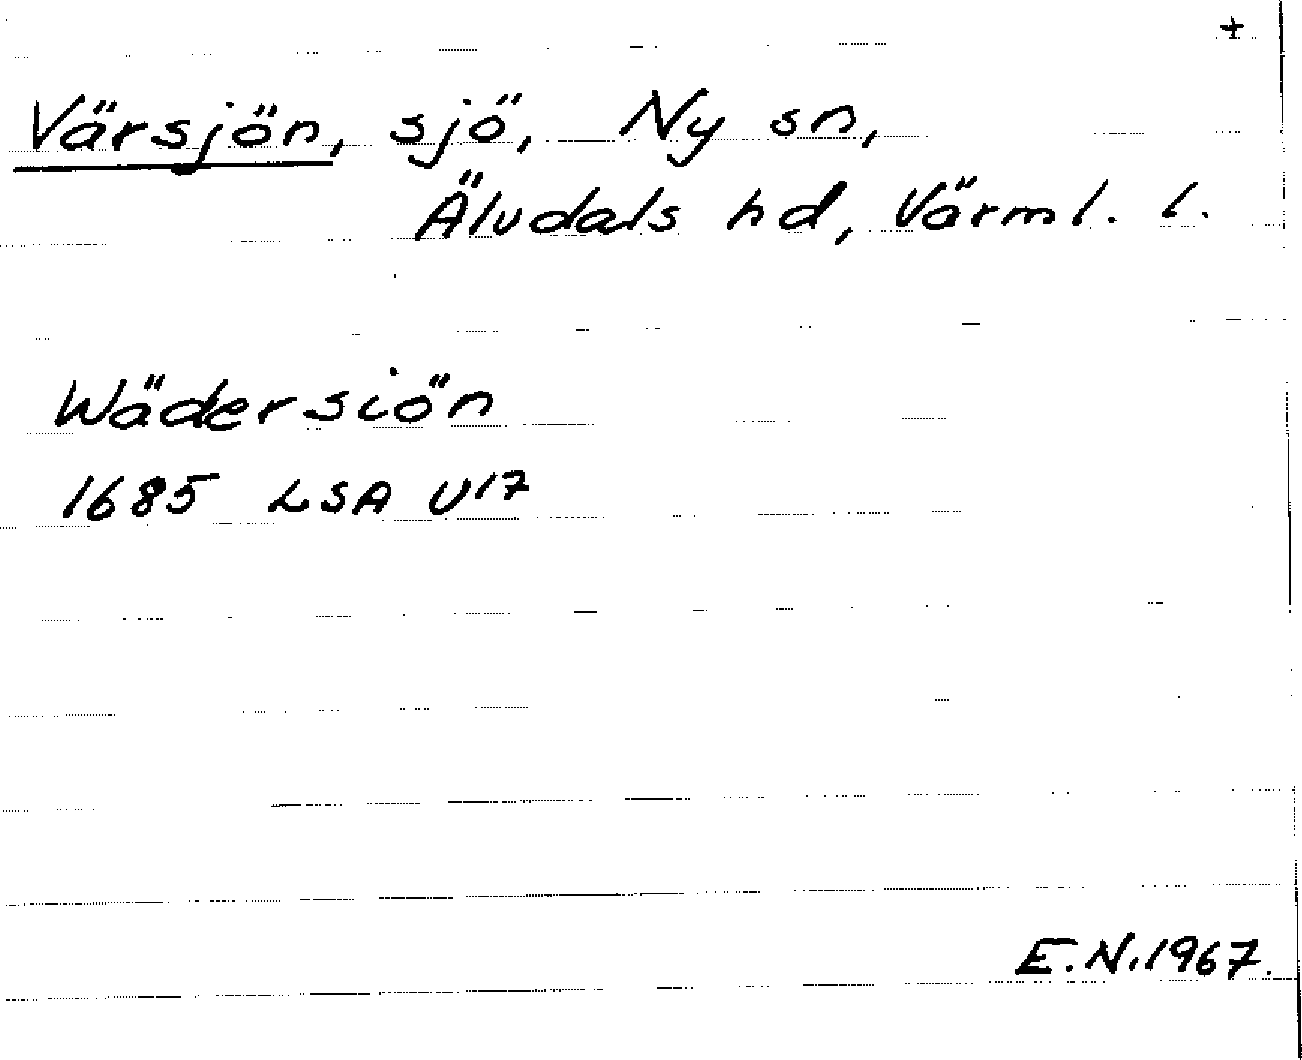 +
Värsjön, sjö, Ny sn,
Älvdals hd, Värml. l.
Wädersiön
1685 LSA U17
E.N. 1967.